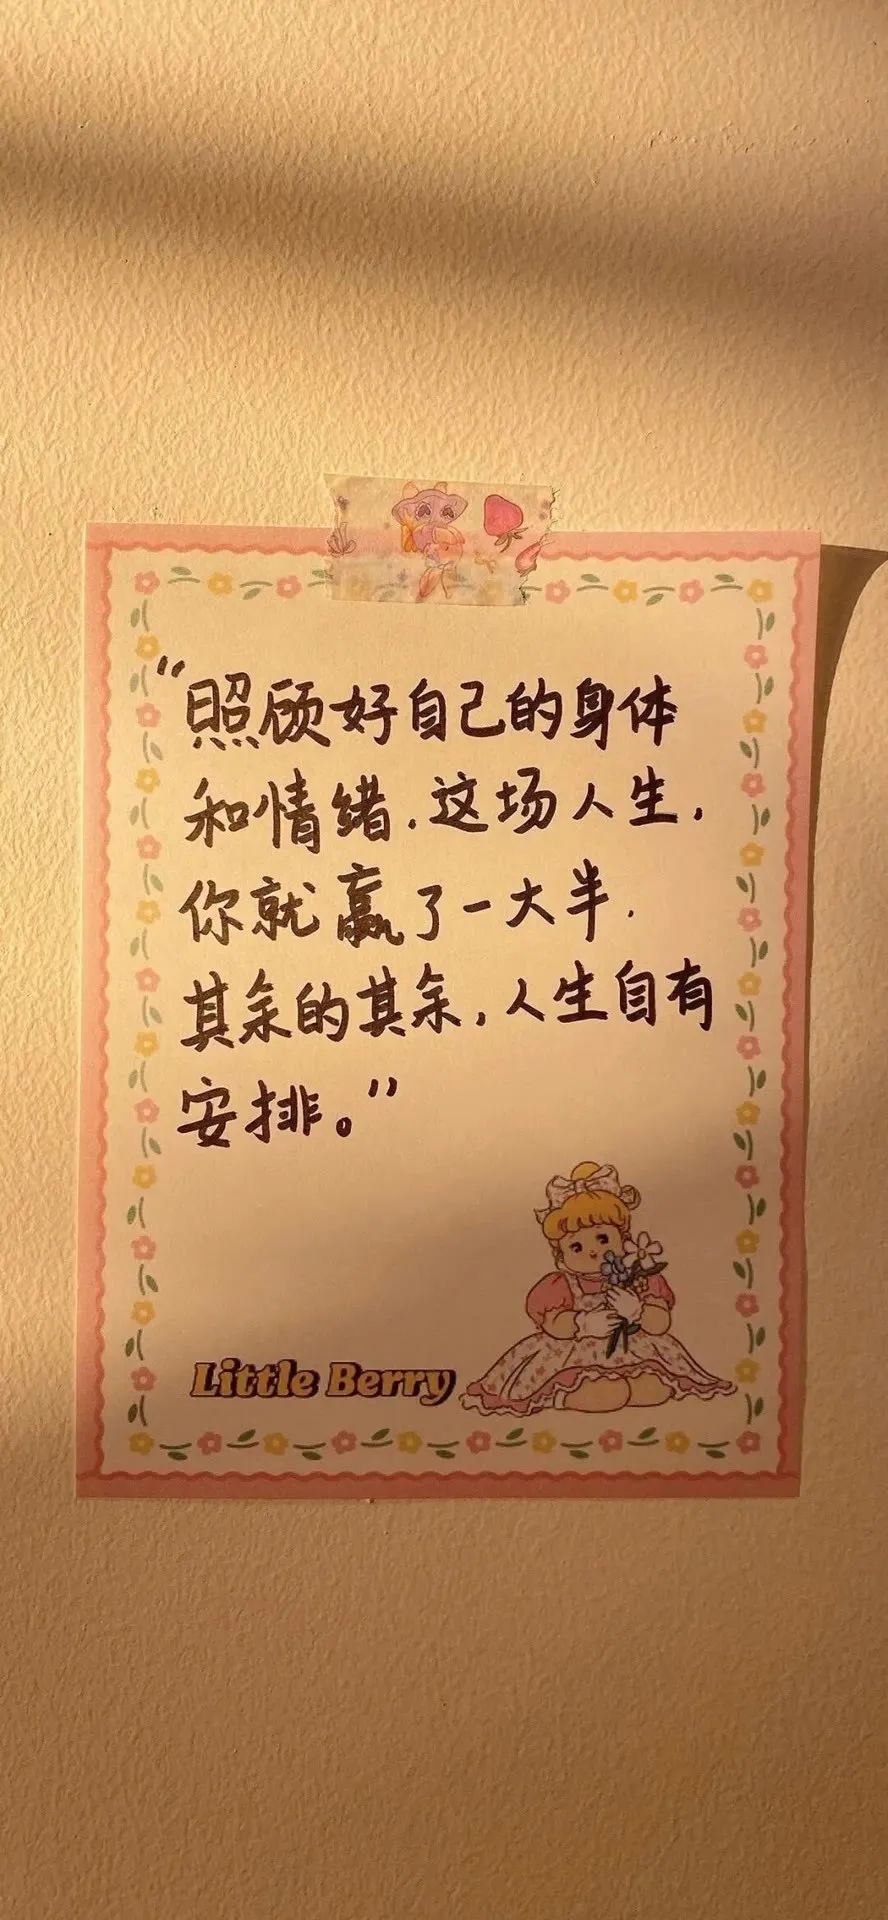 “照顾好自己的身体
和情绪.这场人生,
你就赢了一大半.
其余的其余,人生自有
安排。”
Little Berry